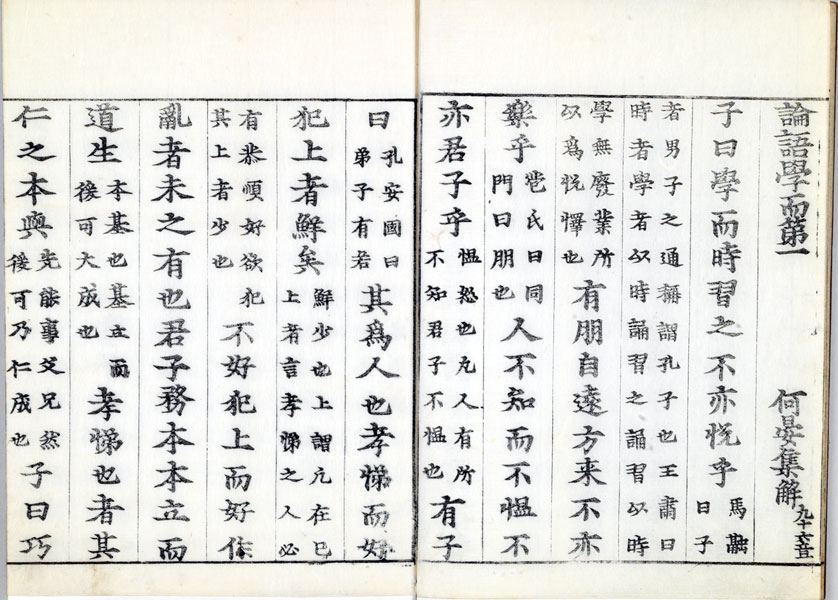 論語學而第一 何晏集解 凡十六章
子曰學而時習之不亦悅乎馬融曰子
者男子之通稱謂孔子也王肅曰時者學者以時誦習之誦習以時
學無廢業所以爲悅懌也有朋自遠方来不亦
樂乎苞氏曰同門曰朋也人不知而不慍不
亦君子乎慍怒也凡人有所不知君子不慍也有子
曰孔安國曰弟子有若其爲人也孝悌而好
犯上者鮮矣鮮少也上謂凡在己上者言孝悌之人必
有恭順好欲犯其上者少也不好犯上而好作
亂者未之有也君子務本本立而
道生本基也基立而後可大成也孝悌也者其
仁之本與先能事父兄然後可乃仁成也子曰巧